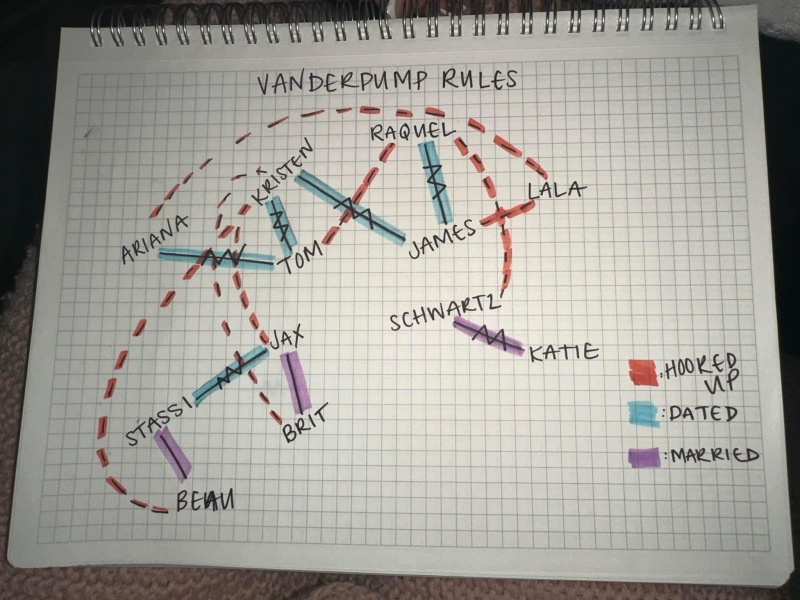 VANDERPUMP RULES
RAQUEL
KRISTEN
LALA
ARIANA
TOM
JAMES
SCHWARTZ
KATIE
JAX
STASSI
BRIT
BEAU
: HOOKED
UP
: DATED
: MARRIED